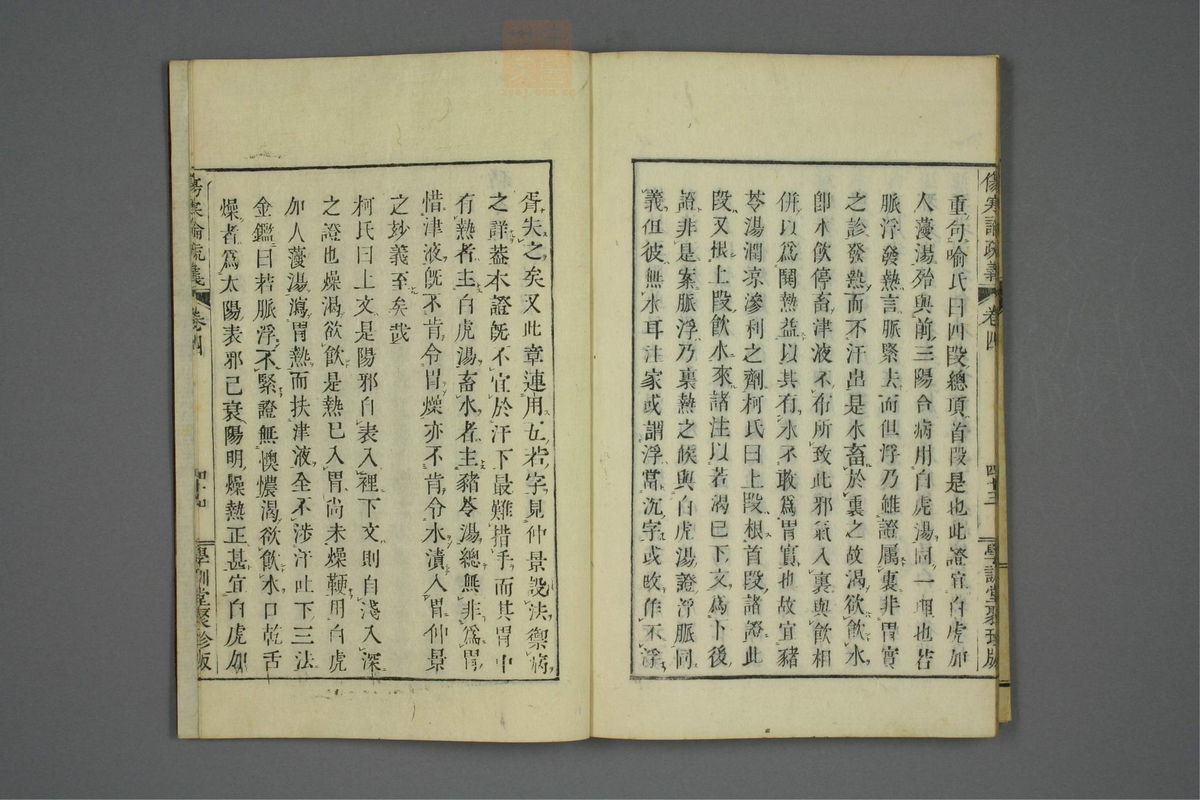 傷寒論疏義 卷四 四十三 學訓堂聚珍版
重句喻氏曰四段總項首段是也此證宜白虎加
人薓湯殆與前三陽合病用白虎湯同一理也若
脈浮發熱言脈緊去而但浮乃雖證屬裏非胃實
之診發熱而不汗出是水畜於裏之故渴欲飮水
卽水飮停畜津液不布所致此邪氣入裏與飮相
併以爲鬱熱益以其有水不敢爲胃實也故宜豬
苓湯潤凉滲利之劑柯氏曰上段根首段諸證此
段又根上段飮水來諸注以若渴已下文爲下後
證非是案脈浮乃裏熱之候與白虎湯證浮脈同
義但彼無水耳注家或謂浮當沉字或改作不浮
胥失之矣又此章連用五若字見仲景設法禦病
之詳葢本證旣不宜於汗下最難措手而其胃中
有熱者主白虎湯畜水者主豬苓湯總無非爲胃
惜津液旣不肯令胃燥亦不肯令水漬入胃仲景
之妙義至矣哉
柯氏曰上文是陽邪自表入裡下文則自淺入深
之證也燥渴欲飮是熱已入胃尚未燥鞕用白虎
加人薓湯瀉胃熱而扶津液全不涉汗吐下三法
金鑑曰若脈浮不緊證無懊憹渴欲飮水口乾舌
燥者爲太陽表邪已衰陽明燥熱正甚宜白虎加
傷寒論疏義 卷四 學訓堂聚珍版